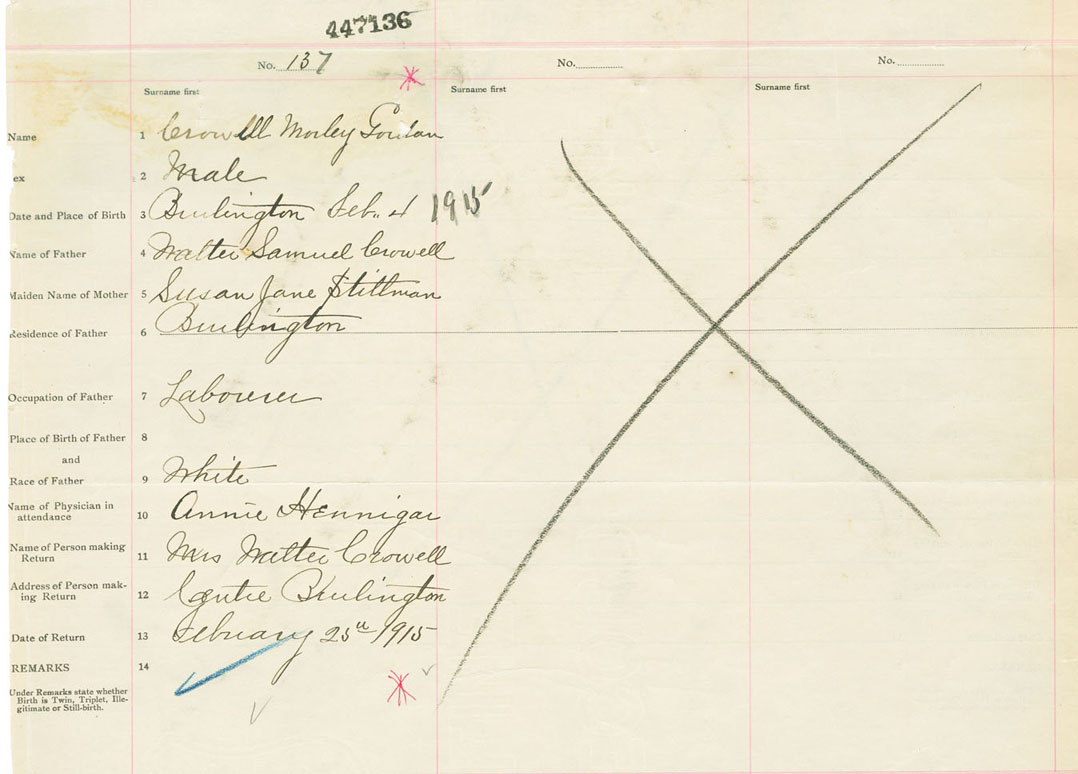 447136
No. 137
No.
No.
Surname first
Surname first
Surname first
Name 1 Crowell Morley Gordon
ex 2 Male
Date and Place of Birth 3 Burlington Feb. 4 1915
Name of Father 4 Walter Samuel Crowell
Maiden Name of Mother 5 Susan Jane Stillman
Residence of Father 6 Burlington
Occupation of Father 7 Labourer
Place of Birth of Father 8
and
Race of Father 9 White
Name of Physician in
attendance 10 Annie Hennigar
Name of Person making
Return 11 Mrs Walter Crowell
Address of Person mak-
ing Return 12 Centre Burlington
Date of Return 13 February 25th 1915
REMARKS 14
Under Remarks state whether
Birth is Twin, Triplet, Ille-
gitimate or Still-birth.